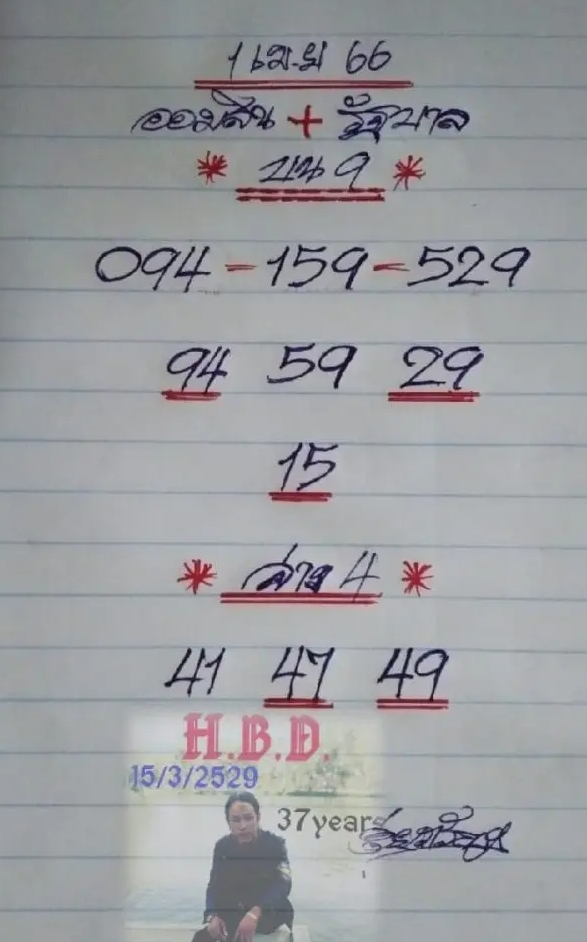 1 เม.ย 66
ออมสิน + รัฐบาล
* บน 9 *
094 - 159 - 529
94 59 29
15
* ล่าง 4 *
41 47 49
H.B.D.
15/3/2529
37years